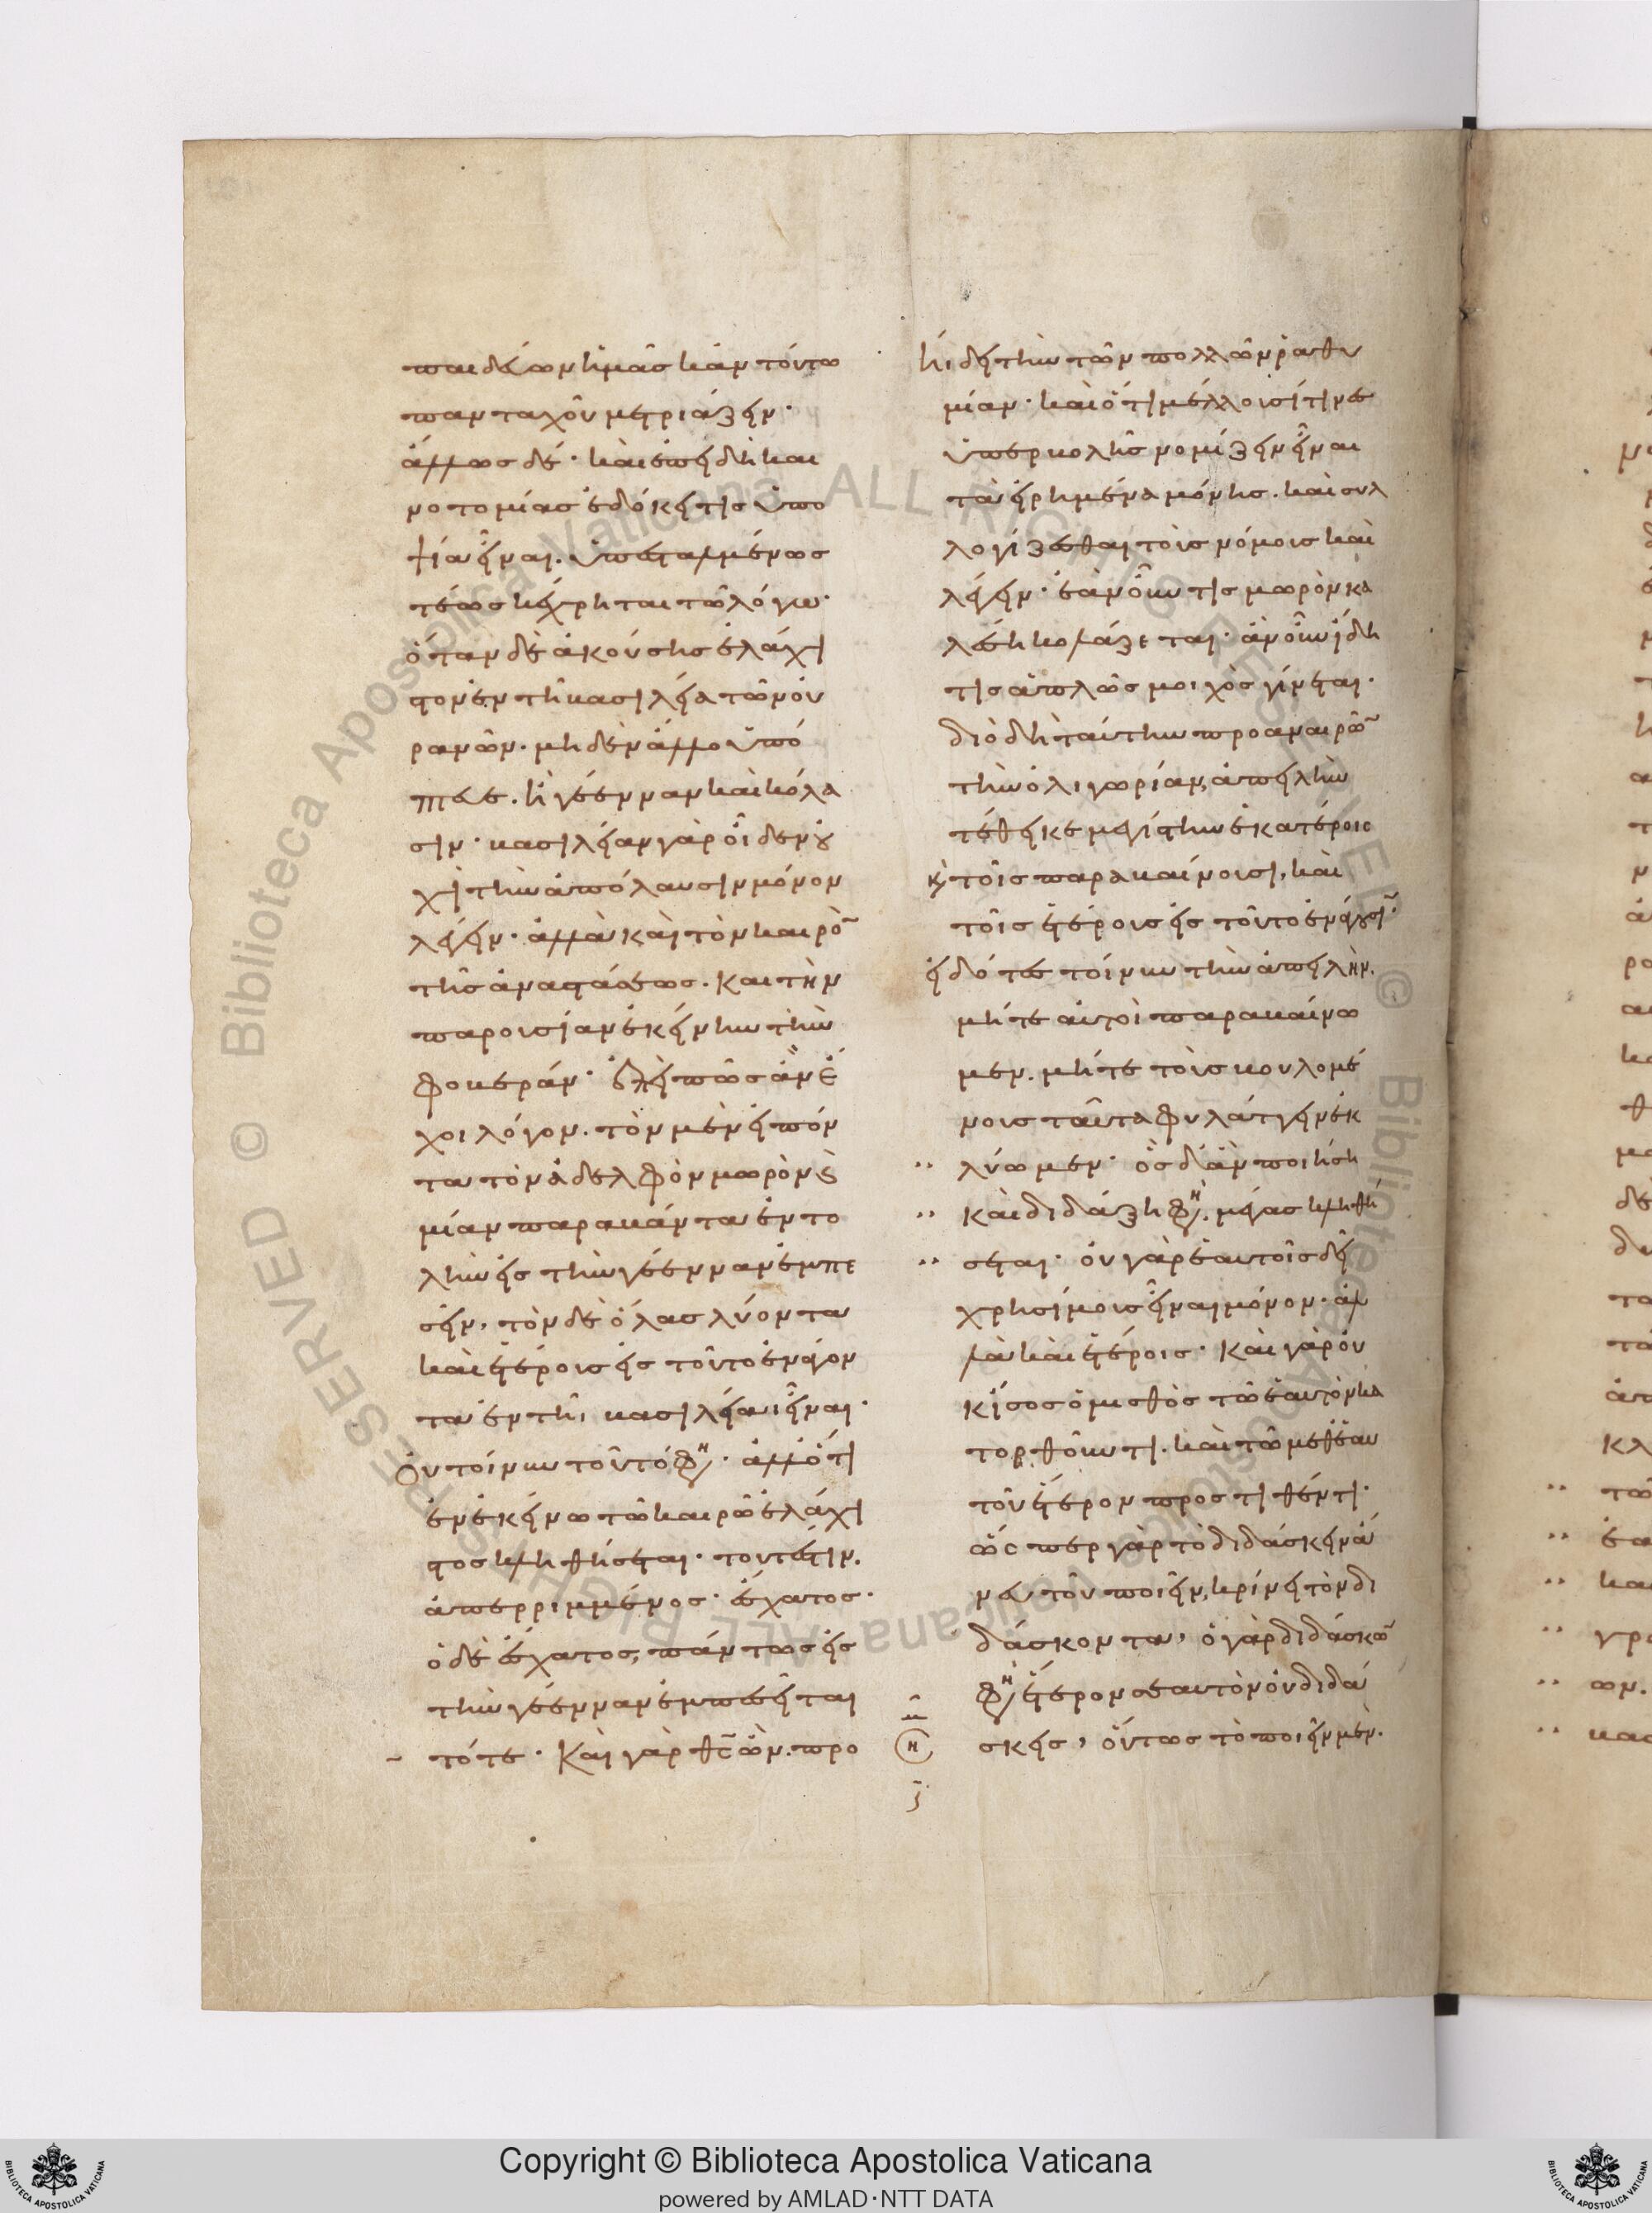 παιδεύων ἡμᾶς κἀν τούτω
πανταχοῦ μετριάζειν·
ἄλλως δὲ· καὶ ἐπειδὴ και
νοτομίας ἐδόκει τις ὑπο
ψία εἶναι. ὑπεσταλμένως
τέως κέχρηται τῶ λόγω·
ὅταν δὲ ἀκούσης ἐλάχι
στον ἐν τῆ βασιλεία τῶν οὐ
ρανῶν. μηδὲν ἄλλο ὑπό
πτευε. ἢ γέενναν καὶ κόλα
σιν· βασιλείαν γὰρ οἶδεν οὐ
χὶ τὴν ἀπόλαυσιν μόνον
λέγειν· ἀλλὰ καὶ τὸν καιρὸ̅
τῆς ἀναστάσεως. και τὴν
παρουσίαν ἐκείνην τὴν
φοβεράν· ἐπεὶ πῶς ἂν ἔ
χοι λόγον. τὸν μὲν εἰπόν
τα τὸν ἀδελφὸν μωρὸν ὲ
μίαν παραβάντα ἐντο
λὴν εἰς τὴν γέενναν ἐμπε
σεῖν, τὸν δὲ ὅλας λύοντα
καὶ ἑτέροις εἰς τοῦτο ἐνάγον
τα ἐν τῆ, βασιλεία εἶναι·
Οὐ τοίνυν τοῦτό φη· ἀλλ' ὅτι
ἐν ἐκείνω τῶ καιρῶ ἐλάχι
στος κληθήσεται· τουτέστιν.
ἀπερριμμένος· ἔσχατος·
ὁ δὲ ἔσχατος, πάντως εἰς
τὴν γέενναν ἐμπεσεῖται
τότε· Καὶ γὰρ θ̅ς̅ ὢν. προ
ήιδει τὴν τῶν πολλῶν ῥαθυ
μίαν· καὶ ὅτι μέλλουσί τινες
ὑπερβολῆς νομίζειν εἶναι
τὰ εἰρημένα μόνης. καὶ συλ
λογίζεσθαι τοὺς νόμους καὶ
λέγειν· ἐὰν οὖν τις μωρὸν κα
λέση κολάζεται· ἂν οὖν ἴδη
τις ἁπλῶς μοιχὸς γίνεται·
διὸ δὴ ταύτην προαναιρῶ̅
τὴν ὀλιγωρίαν, ἀπειλὴν
τέθεικε μεγίστην ἑκατέροις
κ(αὶ) τοῖς παραβαίνουσι, καὶ
τοῖς ἑτέρους εἰς τοῦτο ἐνάγουσι̅·
εἰδότες τοίνυν τὴν ἀπειλὴν.
μήτε αὐτοὶ παραβαίνω
μεν. μήτε τοὺς βουλομέ
νους ταῦτα φυλάττειν ἐκ
λύωμεν· ὃς δ' ἂν ποιήση
καὶ διδάξη φη. μέγας κληθή
σεται· οὐ γὰρ ἑαυτοῖς δεῖ
χρησίμους εἶναι μόνον· ἀλ
λὰ καὶ ἑτέροις· Καὶ γὰρ οὐ
κ ἴσος ὁ μισθὸς τῶ ἑαυτὸν κα
τορθοῦντι. καὶ τῶ μεθ' ἑαυ
τοῦ ἕτερον προστιθέντι·
ὥσπερ γὰρ τὸ διδάσκειν ἄ
νευ τοῦ ποιεῖν, κρίνει τὸν δι
δάσκοντα, ὁ γὰρ διδάσκω̅
φη ἕτερον σεαυτὸν οὐ διδά
σκεις, οὕτως τὸ ποιεῖν μὲν.